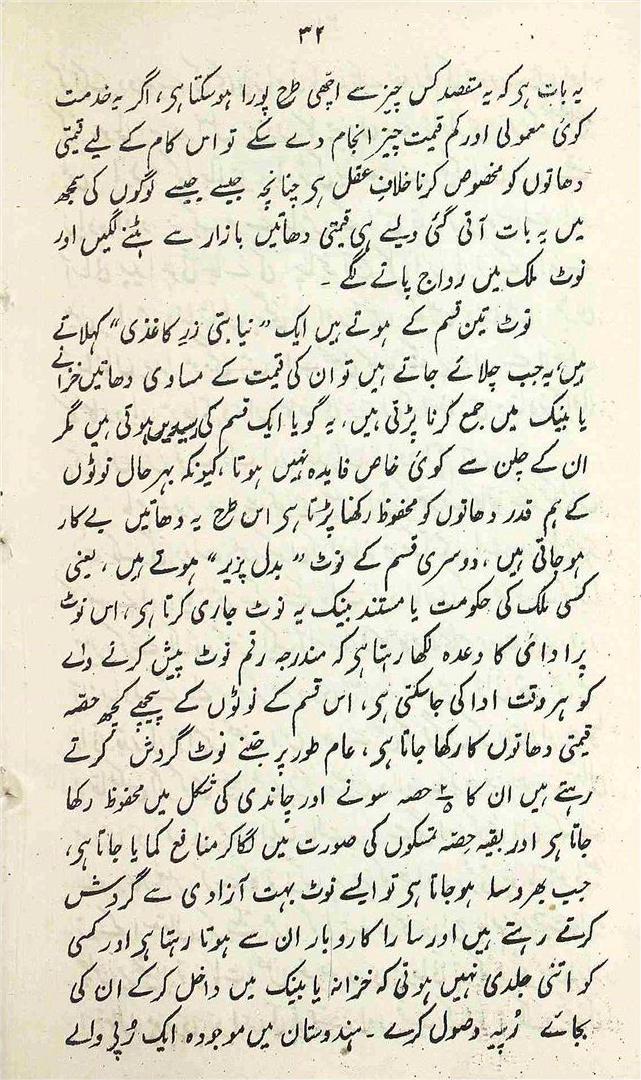 ۳۲
یہ بات ہر کہ یہ مقصد کس چیز سے اچھی طرح پورا ہو سکتا ہر، اگر یہ خدمت
کوئ معمولی اور کم قیمت چیز انجام دے سکے تو اس کام کے لیے قیمتی
دھاتوں کو مخصوص کرنا خلافِ عقل ہر چنانچہ جیسے جیسے لوگوں کی سمجھ
میں یہ بات آتی گئی ویسے ہی قیمتی دھاتیں بازار سے ہٹنے لگیں اور
نوٹ ملک میں رواج پانے لگے ۔
نوٹ تین قسم کے ہوتے ہیں ایک ”نیابتی زرِ کاغذی“ کہلاتے
ہیں، یہ جب چلائے جاتے ہیں تو ان کی قیمت کے مساوی دھاتیں خزانے
یا بینک میں جمع کرنا پڑتی ہیں، یہ گویا ایک قسم کی رسیدیں ہوتی ہیں مگر
ان کے چلن سے کوئ خاص فایدہ نہیں ہوتا، کیونکہ بہر حال نوٹوں
کے ہم قدر دھاتوں کو محفوظ رکھنا پڑتا ہر اس طرح یہ دھاتیں بے کار
ہو جاتی ہیں، دوسری قسم کے نوٹ ”بدل پزیر“ ہوتے ہیں، یعنی
کسی ملک کی حکومت یا مستند بینک یہ نوٹ جاری کرتا ہر، اس نوٹ
پر ادائ کا وعدہ لکھا رہتا ہر کہ مندرجہ رقم نوٹ پیش کرنے والے
کو ہر وقت ادا کی جاسکتی ہر، اس قسم کے نوٹوں کے پیچھے کچھ حصّہ
قیمتی دھاتوں کا رکھا جاتا ہر، عام طور پر جتنے نوٹ گردش کرتے
رہتے ہیں ان کا ۲/۵ حصہ سونے اور چاندی کی شکل میں محفوظ رکھا
جاتا ہر اور بقیہ حصّہ تمسکوں کی صورت میں لگا کر منافع کمایا جاتا ہر،
جب بھروسا ہو جاتا ہر تو ایسے نوٹ بہت آزادی سے گردش
کرتے رہتے ہیں اور سارا کاروبار ان سے ہوتا رہتا ہر اور کسی
کو اتنی جلدی نہیں ہوتی کہ خزانہ یا بینک میں داخل کر کے ان کی
بجائے رُپیہ وصول کرے ۔ ہندوستان میں موجودہ ایک رُپی والے